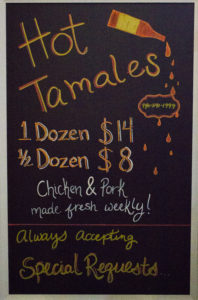 Hot
Tamales
1 Dozen $14
½ Dozen $8
Chicken & Pork
made fresh weekly!
Always Accepting
Special Requests...